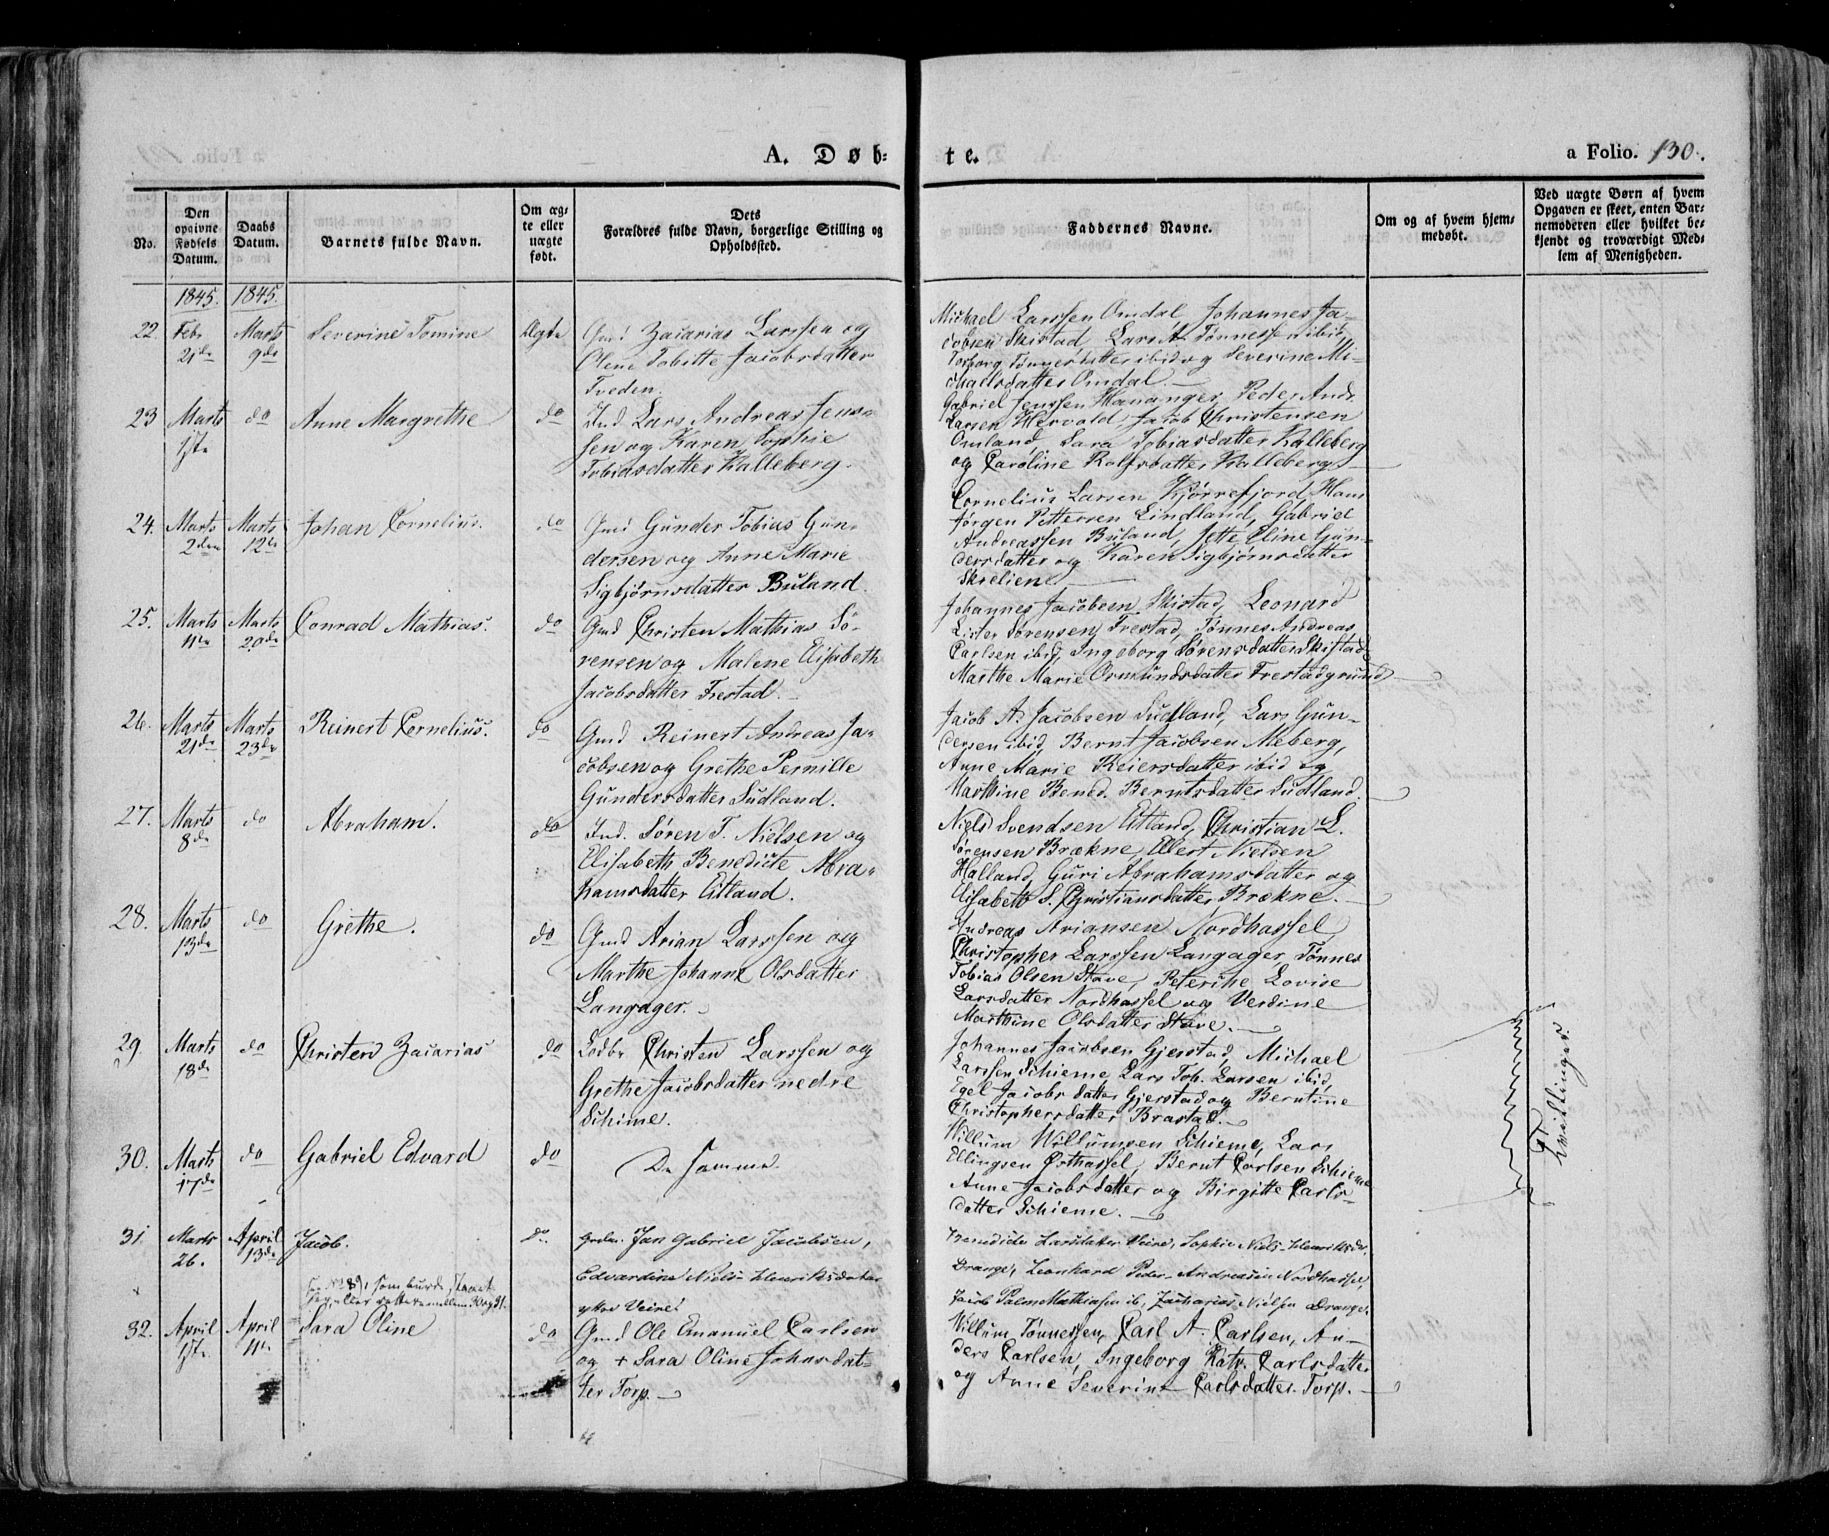 A. Døb-
te.
a Folio. 130.
No.
Den opgivne Fødsels Datum.
Daabs Datum.
Barnets fulde Navn.
Om ægte eller uægte født.
Dets Forældres fulde Navn, borgerlige Stilling og Opholdssted.
Faddernes Navne.
Om og af hvem hjemmedøbt.
Ved uægte Børn af hvem Opgaven er skeet, enten Barnemoderen eller hvilket bekjendt og troværdigt Medlem af Menigheden.
1845. 1845.
22. Feb. 21de Marts 9de Severine Tomine Ægte
Gmd Zacarias Larssen og
Olene Tobitte Jacobsdatter
Tveden.
Michael Larssen Omdal Johannes Ja-
cobsen Skistad, Lars A. Tønnessen ibid,
Torborg Tønnesdatter ibid og Severine Mi-
chaelsdatter Omdal.
23 Marts 1ste do Anne Margrethe do
Ind Lars Andreas Jens-
sen og Karen Sophie
Tobiasdatter Kalleberg.
Gabriel Jenssen Hananger, Peder Andr.
Larsen Hervold Jacob Christensen
Omland, Sara Tobiasdatter Kalleberg
og Caroline Rolfsdatter Kalleberg
24. Marts 2den Marts 12te Johan Cornelius. do
Gmd Gunder Tobias Gun-
dersen og Anne Marie
Sigbjørnsdatter Buland.
Cornelius Larsen Kjørrefjord, Hans
Jørgen Pettersen Lindland, Gabriel
Andreassen Buland, Jette Eline Gun-
dersdatter og Karen Sigbjørnsdatter
Skreliene.
25. Marts 11te Marts 20de Conrad Mathias. do
Gmd Christen Mathias Sø-
rensen og Malene Elisabeth
Jacobsdatter Frestad.
Johannes Jacobsen Skistad, Leonard
Lister Sørensen Frestad, Tønnes Andreas
Carlsen ibid, Ingeborg Sørensdatter Skistad
Marthe Marie Ormundsdatter Frestadgrund
26. Marts 21de Marts 23de Reinert Cornelius. do
Gmd Reinert Andreas Ja-
cobsen og Grethe Pernille
Gundersdatter Sudland.
Jacob A. Jacobsen Sudland, Lars Gun-
dersen ibid, Bernt Jacobsen Meberg,
Anne Marie Reiersdatter ibid og
Marthine Bened. Berntsdatter Sudland.
27. Marts 8de do Abraham. do
Ind. Søren T. Nielsen og
Elisabeth Benedicte Abra-
hamsdatter Eitland.
Niels Svendsen Eitland, Christian L.
Sørensen Brækne, Elert Nielsen
Halland, Guri Abrahamsdatter og
Elisabeth S. Christiansdatter Brækne.
28. Marts 13de do Grethe. do
Gmd Arian Larssen og
Marthe Johanne Olsdatter
Langager.
Andreas Ariansen Nordhassel,
Christopher Larssen Langager, Tønnes
Tobias Olsen Stave, Peterike Lovise
Larsdatter Nordhassel og Verdine
Marthine Olsdatter Stave.
29. Marts 18de do Christen Zacarias do
Lodbr Christen Larssen og
Grethe Jacobsdatter nedre
Schime.
Johannes Jacobsen Gjerstad, Michael
Larssen Schieme Lars Tob. Larsen ibid,
Egel Jacobsdatter Gjerstad og Berntine
Christophersdatter Brastad.
30. Marts 17de do Gabriel Edvard do
De samme.
Willum Willumsen Schieme, Lars
Ellingsen Østhassel, Bernt Carlsen Schieme
Anne Jacobsdatter og Birgitte Carls-
datter Schieme.
Tvillinger.
31 Marts 26. April 13de Jacob. do
Jan Gabriel Jacobsen,
Edvardine Niels Henriksdatter
ytre Veire.
Benedicte Larsdatter Veire, Sophie Niels-Henriksdr.
Drange, Leonhard Peder Andreasen Nordhassel,
Jacob Palm Mathiasen ib, Zacharias Nielsen Drange.
No 89, som burde staaet
her, eller rettere mellem 30 og 31.
32. April 1ste April 11te Sara Oline do
Gmd Ole Emanuel Carlsen
og + Sara Oline Johnsdat-
ter Torp.
Willum Tønnessen, Carl A. Carlsen, An-
ders Carlsen, Ingeborg Katr. Carlsdatter
og Anne Severine Carlsdatter Torp.